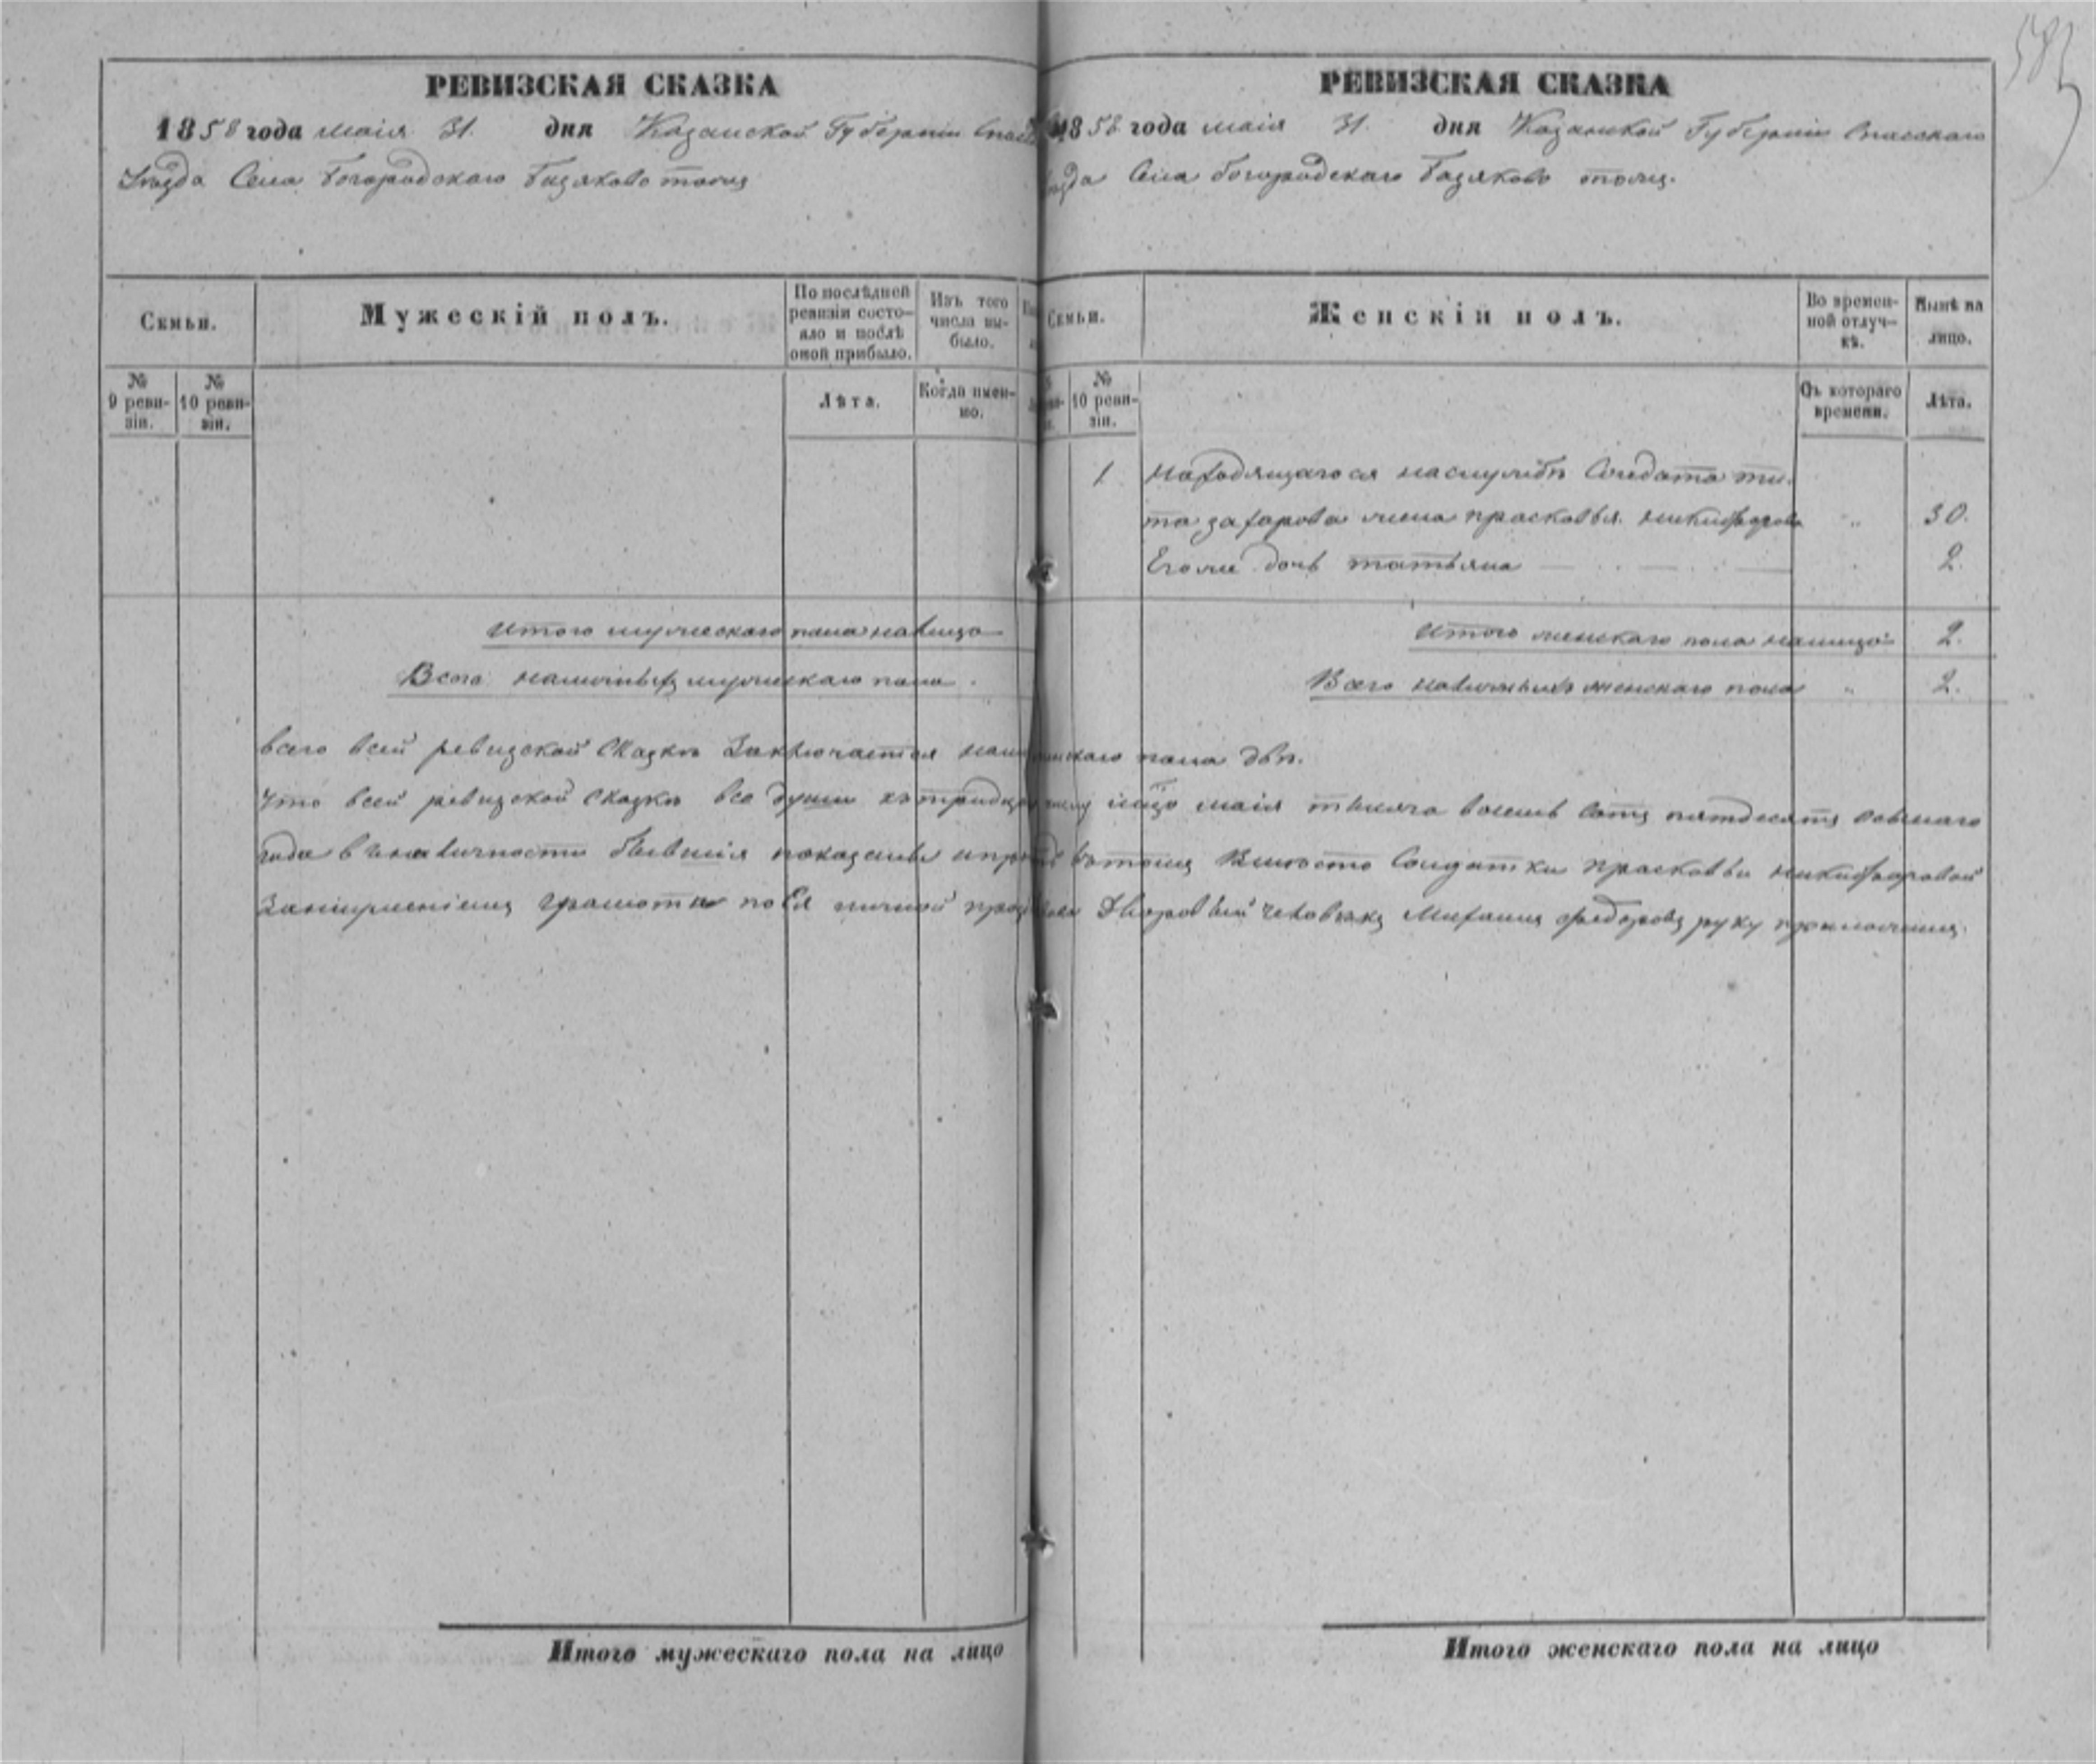 583
РЕВИЗСКАЯ СКАЗКА
1858 года маія 31. дня Казанской Губерніи Спас
Уѣзда Села Богородскаго Базяково тожъ
Семьи.
Мужескій полъ.
По послѣдней ревизіи состояло и послѣ оной прибыло.
Изъ того числа выбыло.
№ 9 ревизіи.
№ 10 ревизіи.
Лѣта.
Когда именно.
итого мужескаго пола налицо
Всего наличныхъ мужескаго пола
РЕВИЗСКАЯ СКАЗКА
1858 года маія 31. дня Казанской Губерніи Спасскаго
уѣзда Села Богородскаго Базяково тожъ.
Семьи.
Женскій полъ.
Во временной отлучкѣ.
Нынѣ на лицо.
№ 10 ревизіи.
Съ котораго времени.
Лѣта.
1 находящагося наслужбѣ Солдата ти
та захарова жена прасковья никифорова „ 30.
Егоже дочь татьяна 2.
итого женскаго пола налицо 2.
Всего наличныхъ женскаго пола „ 2.
всего всей ревизской Сказкѣ Заключается женскаго пола двѣ.
Что всей ревизской Сказкѣ все души къ тридцать маія тысяча восемь сотъ пятдесятъ осьмаго
года вналичности бывшія показаны въ томъ Вместо Солдатки прасковьи никифоровой
Занеумениемъ грамоты по Ея личной прозбѣ Дворовый человѣкъ Михаилъ федоровъ руку приложилъ.
Итого мужескаго пола на лицо
Итого женскаго пола на лицо